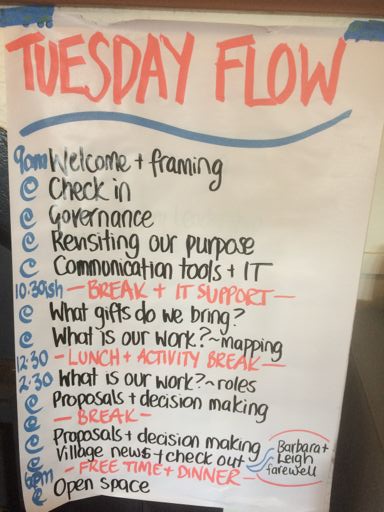 TUESDAY FLOW
9am Welcome + framing
Check in
Governance
Revisiting our purpose
Communication tools + IT
10:30ish - BREAK + IT SUPPORT -
What gifts do we bring?
What is our work? ~ mapping
12:30 - LUNCH + ACTIVITY BREAK -
2:30 What is our work? ~ roles
Proposals + decision making
- BREAK -
Proposals + decision making
Village news + check out
Barbara +
Leigh
farewell
6pm - FREE TIME + DINNER -
Open space